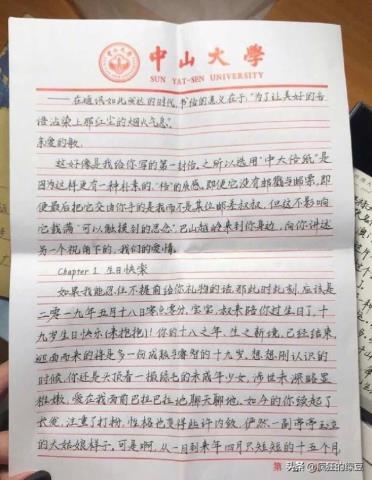 中山大學
SUN YAT-SEN UNIVERSITY
——在通讯如此发达的时代,书信的意义在于:"为了让美好的言
语沾染上那红尘的烟火气息。"
亲爱的歌:
这好像是我给你写的第一封信,之所以选用"中大信纸"是
因为这样更有一种朴素的"信"的质感。即便它没有邮戳与邮票,即
便最后把它交由你手的是我而不是某位邮差叔叔,但这不影响
它载满"可以触摸到的思念",巴山越岭来到你身边,向你讲述
另一个视角下的,我们的爱情。
Chapter 1 生日快乐
如果我能忍住不提前给你礼物的话,那此时此刻,应该是
二零一九年五月十八日零点零分,宝宝,叔来陪你过生日了,十
九岁生日快乐(来抱抱)!你的十八之年,生之新境,已经结束,
迎面而来的将是多一份成熟与睿智的十九岁。想想,刚认识的
时候,你还是大顶着一撮绺毛的未成年少女,涉世未深略显
稚嫩,爱在我面前巴拉巴拉地聊天聊地,如今的你续起了
长发,注重了打扮,性格也变得些许内敛,俨然一副亭亭玉立
的大姑娘样子。可是啊,从一月到来年四月只短短的十五个月
第
头条 @疯狂的绿豆